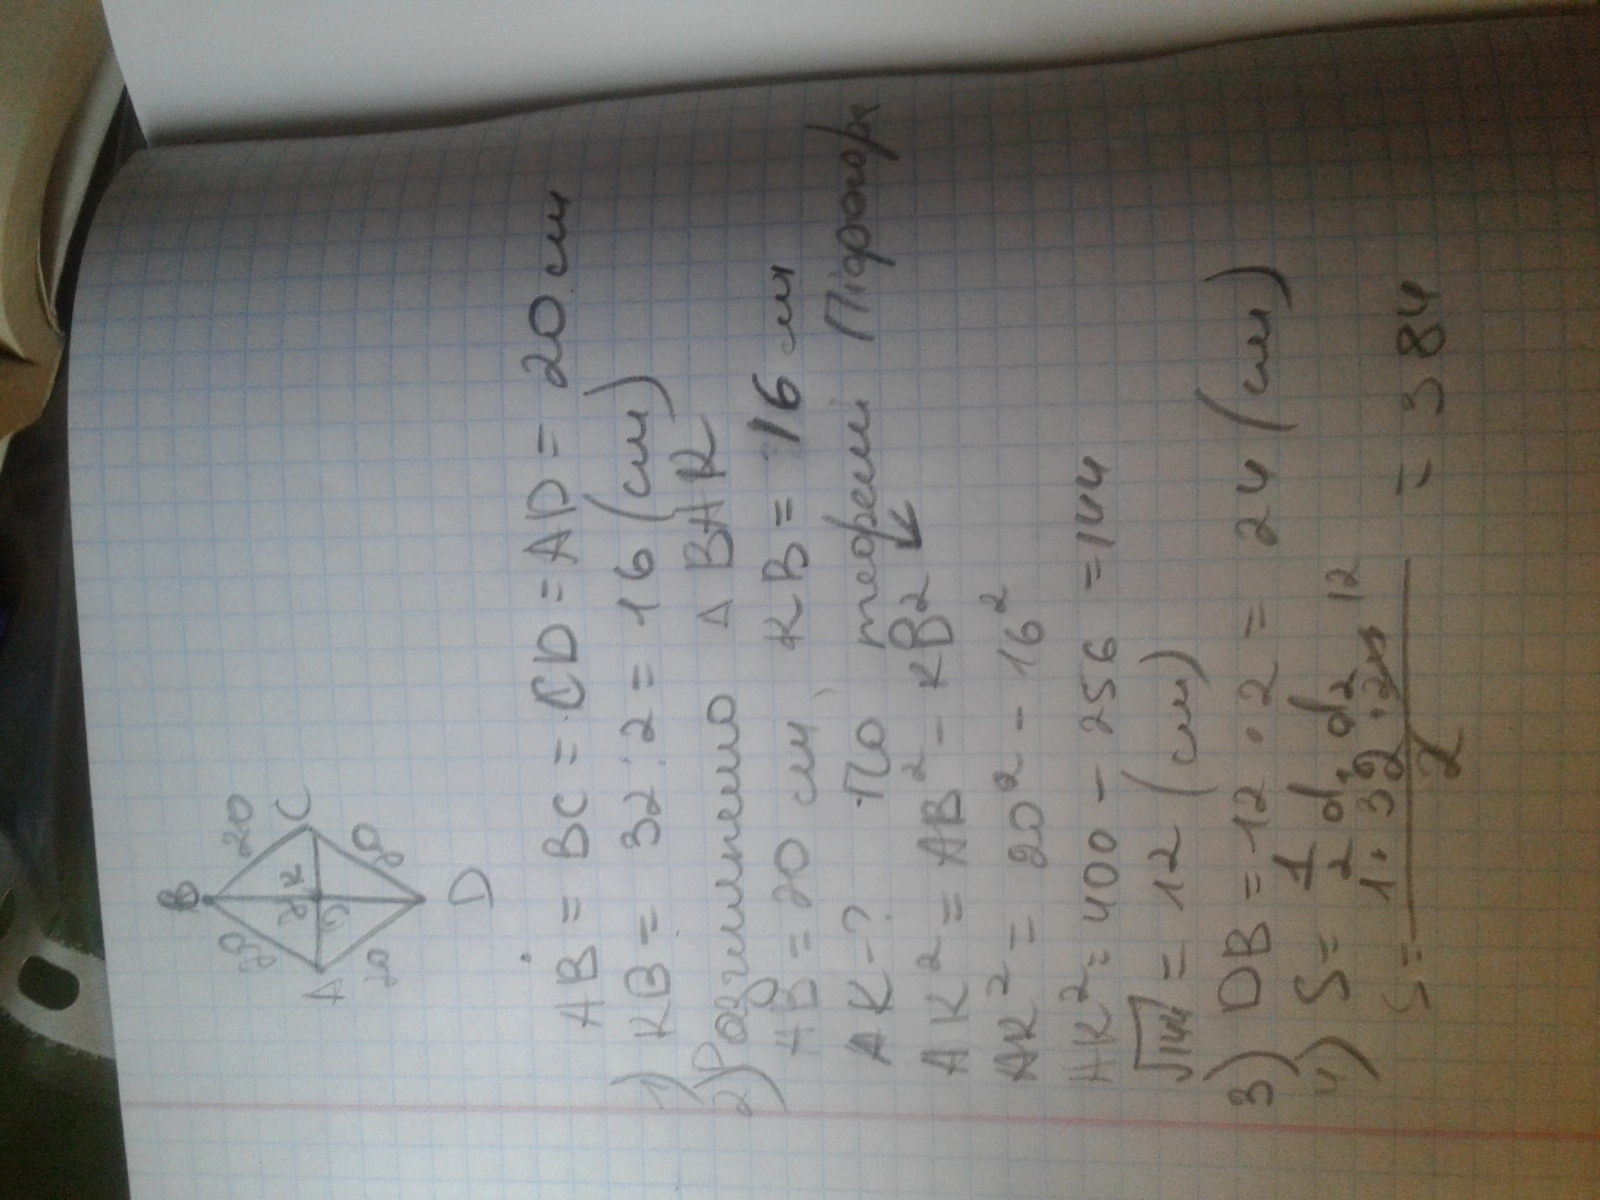 B
20 20
A K C
20 20
D
AB = BC = CD = AD = 20 см
1) KB = 32 : 2 = 16 (см)
2) Розглянемо Δ BAK
AB = 20 см, KB = 16 см
AK - ? По теоремі Піфагора
AK² = AB² - KB²
AK² = 20² - 16²
AK² = 400 - 256 = 144
√144 = 12 (см)
3) DB = 12 · 2 = 24 (см)
4) S = 1/2 d₁ d₂
S = 1 · 32 · 24 12 / 2 = 384